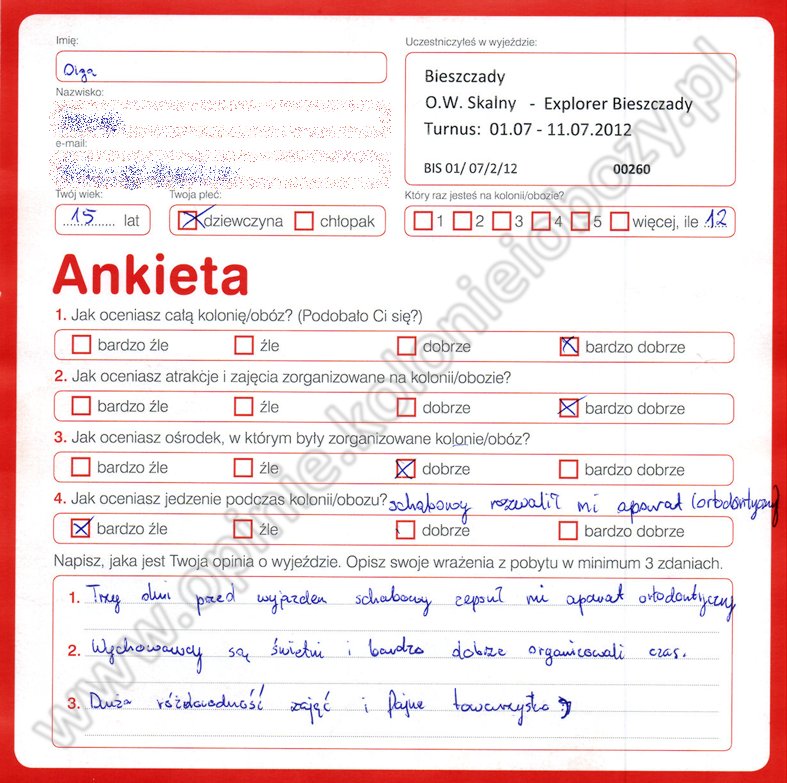 Imię:
Olga
Uczestniczyłeś w wyjeździe:
Bieszczady
O.W. Skalny - Explorer Bieszczady
Turnus: 01.07 - 11.07.2012
BIS 01/ 07/2/12 00260
Nazwisko:
e-mail:
Twój wiek:
15 lat
Twoja płeć:
dziewczyna chłopak
Który raz jesteś na kolonii/obozie?
1 2 3 4 5 więcej, ile 12
Ankieta
1. Jak oceniasz całą kolonię/obóz? (Podobało Ci się?)
bardzo źle źle dobrze bardzo dobrze
2. Jak oceniasz atrakcje i zajęcia zorganizowane na kolonii/obozie?
bardzo źle źle dobrze bardzo dobrze
3. Jak oceniasz ośrodek, w którym były zorganizowane kolonie/obóz?
bardzo źle źle dobrze bardzo dobrze
4. Jak oceniasz jedzenie podczas kolonii/obozu? schabowy rozwalił mi aparat (ortodontyczny)
bardzo źle źle dobrze bardzo dobrze
Napisz, jaka jest Twoja opinia o wyjeździe. Opisz swoje wrażenia z pobytu w minimum 3 zdaniach.
1. Trzy dni przed wyjazdem schabowy zepsuł mi aparat ortodontyczny
2. Wychowawcy są świetni i bardzo dobrze organizowali czas.
3. Duża różnorodność zajęć i fajne towarzystwo :)
www.opinie.kolonieiobozy.pl